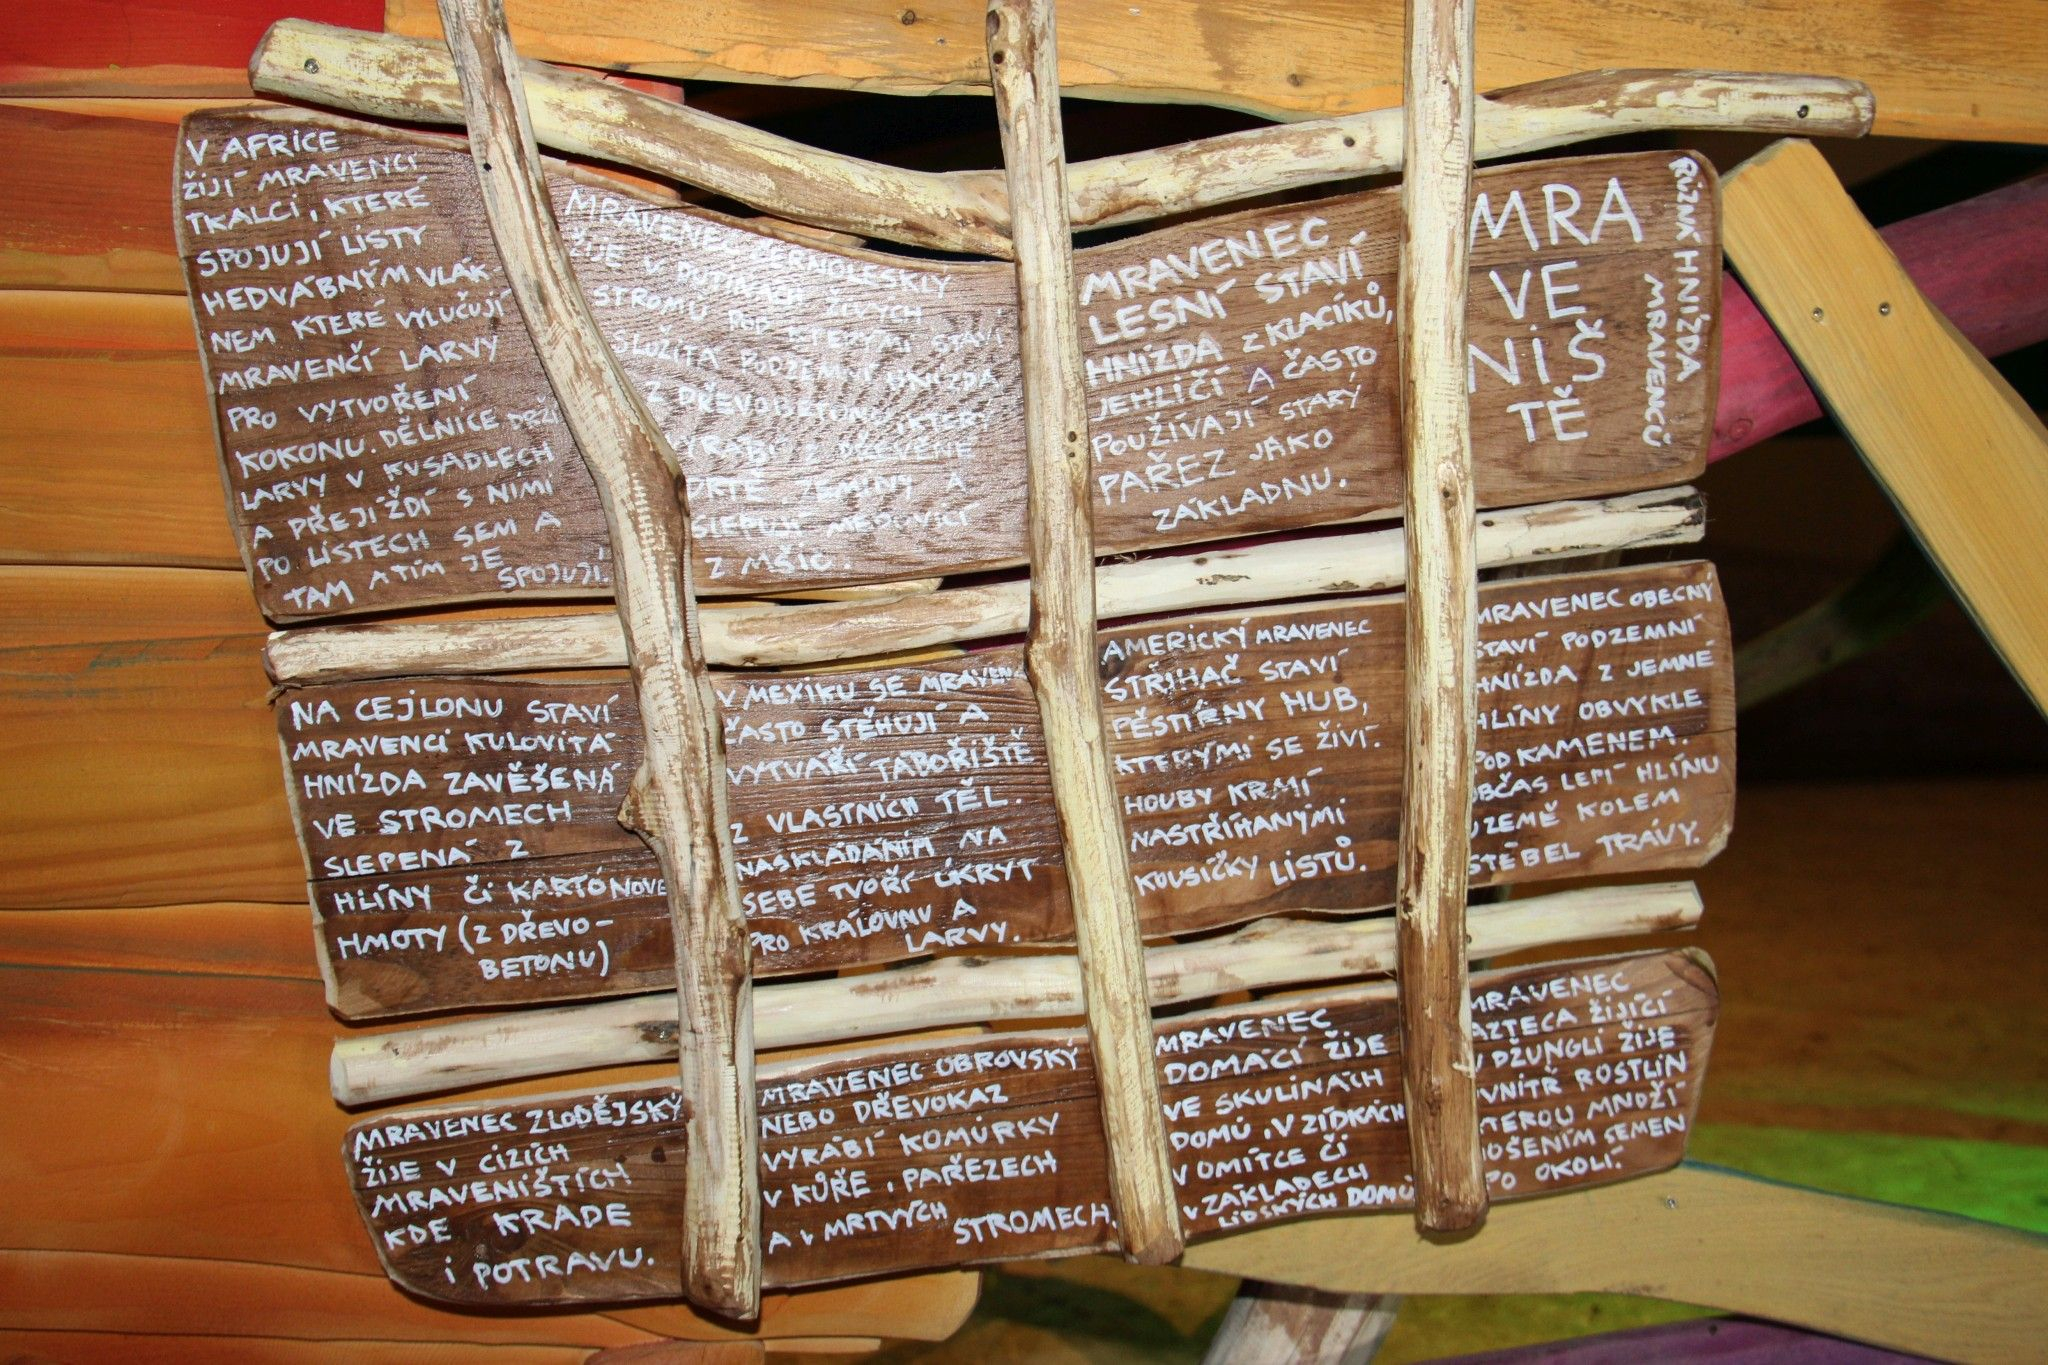 V AFRICE
ŽIJÍ MRAVENCI
TKALCI, KTERÉ
SPOJUJÍ LISTY
HEDVÁBNÝM VLÁK-
NEM KTERÉ VYLUČUJÍ
MRAVENČÍ LARVY
PRO VYTVOŘENÍ
KOKONU. DĚLNICE DRŽÍ
LARVY V KUSADLECH
A PŘEJÍŽDÍ S NIMI
PO LISTECH SEM A
TAM A TÍM JE
SPOJUJÍ.
MRAVENEC ČERNOLESKLÝ
ŽIJE V DUTINÁCH ŽIVÝCH
STROMŮ POD KTERÝMI STAVÍ
SLOŽITÁ PODZEMNÍ HNÍZDA
Z DŘEVOBETONU, KTERÝ
VYRÁBÍ Z DŘEVĚNÉ
DRTĚ ZEMINY A
SLEPUJÍ MEDOVICÍ
Z MŠIC.
MRAVENEC
LESNÍ STAVÍ
HNÍZDA Z KLACÍKŮ,
JEHLIČÍ A ČASTO
POUŽÍVAJÍ STARÝ
PAŘEZ JAKO
ZÁKLADNU.
MRA
VE
NIŠ
TĚ
RŮZNÁ HNÍZDA
MRAVENCŮ
NA CEJLONU STAVÍ
MRAVENCI KULOVITÁ
HNÍZDA ZAVĚŠENÁ
VE STROMECH
SLEPENÁ Z
HLÍNY ČI KARTÓNOVÉ
HMOTY (Z DŘEVO-
BETONU)
V MEXIKU SE
ČASTO STĚHUJÍ A
VYTVÁŘÍ TÁBOŘIŠTĚ
Z VLASTNÍCH TĚL.
NASKLÁDÁNÍM NA
SEBE TVOŘÍ ÚKRYT
PRO KRÁLOVNU A
LARVY.
AMERICKÝ MRAVENEC
STŘIHAČ STAVÍ
PĚSTÍRNY HUB,
KTERÝMI SE ŽIVÍ.
HOUBY KRMÍ
NASTŘÍHANÝMI
KOUSÍČKY LISTŮ.
MRAVENEC OBECNÝ
STAVÍ PODZEMNÍ
HNÍZDA Z JEMNÉ
HLÍNY OBVYKLE
POD KAMENEM.
OBČAS LEPÍ HLÍNU
ZEMĚ KOLEM
STÉBEL TRÁVY.
MRAVENEC ZLODĚJSKÝ
ŽIJE V CIZÍCH
MRAVENIŠTÍCH
KDE KRADE
I POTRAVU.
MRAVENEC OBROVSKÝ
NEBO DŘEVOKAZ
VYRÁBÍ KOMŮRKY
V KŮŘE, PAŘEZECH
A V MRTVÝCH
STROMECH.
MRAVENEC
DOMÁCÍ ŽIJE
VE SKULINÁCH
DOMŮ, V ZÍDKÁCH
V OMÍTCE ČI
V ZÁKLADECH
LIDSKÝCH DOMŮ
MRAVENEC
AZTECA ŽIJÍCÍ
V DŽUNGLI ŽIJE
UVNITŘ ROSTLIN
KTEROU MNOŽÍ
NOŠENÍM SEMEN
PO OKOLÍ.